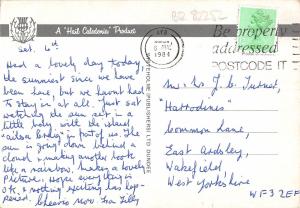 A "Hail Caledonia" Product
Sat. 6th
Had a lovely day today,
the sunniest since we have
been here, but we haven't had
to stay in at all. Just sat
watching the sun set in a
little bay with the island
"ailsa Craig" in front of us. The
sun is going down behind a
cloud & making another look
like a rainbow, making a lovely
picture. Hope everything is
O.K. & nothing waiting has hap-
pened. Cheerio now
WHITEHOLME (PUBLISHERS) LTD. DUNDEE
AYR
1984
Be properly
addressed
POSTCODE IT
Mr. & Mrs. J. Turner,
"Harrodines"
Common Lane,
East Ardsley,
Wakefield
West Yorkshire
WF3 2EF